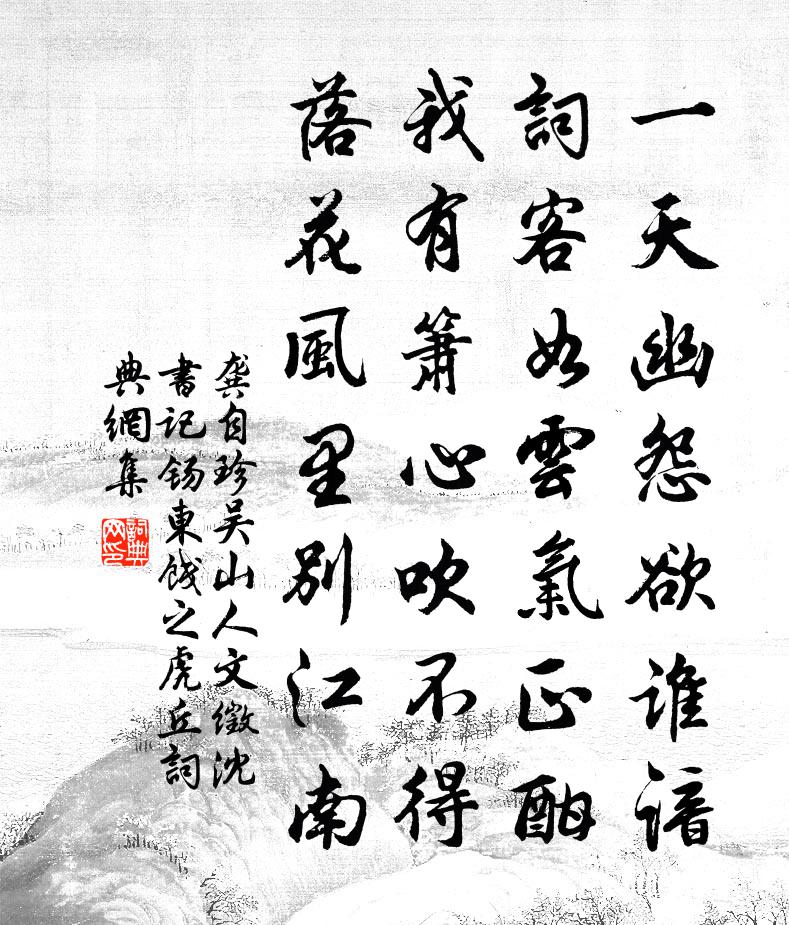 一天幽怨欲誰諳
詞客如雲氣正酣
我有簫心吹不得
落花風里別江南
龔自珍吳山人文徵沈
書記鍚東餞之虎丘詞
典網集
詞典
网印